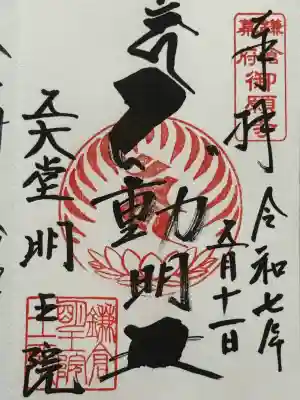 奉拝
令和七年
五月十一日
鎌倉
幕府
御願寺
不動明王
五大堂明王院
鎌倉
明王院